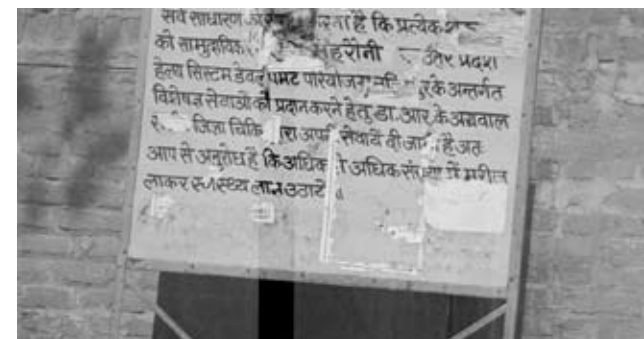 सर्व साधारण है कि प्रत्येक
को सामुदायिक महरौनी उत्तर प्रदेश
हेल्थ सिस्टम डेवलपमेंट परियोजना के अन्तर्गत
विशेषज्ञ सेवाओं को प्रदान करने हेतु डा. आर. के अग्रवाल
जिला द्वारा अपनी सेवायें दी है अतः
आप से अनुरोध है कि अधिक से अधिक संख्या में मरीज
लाकर स्वास्थ्य लाभ उठायें